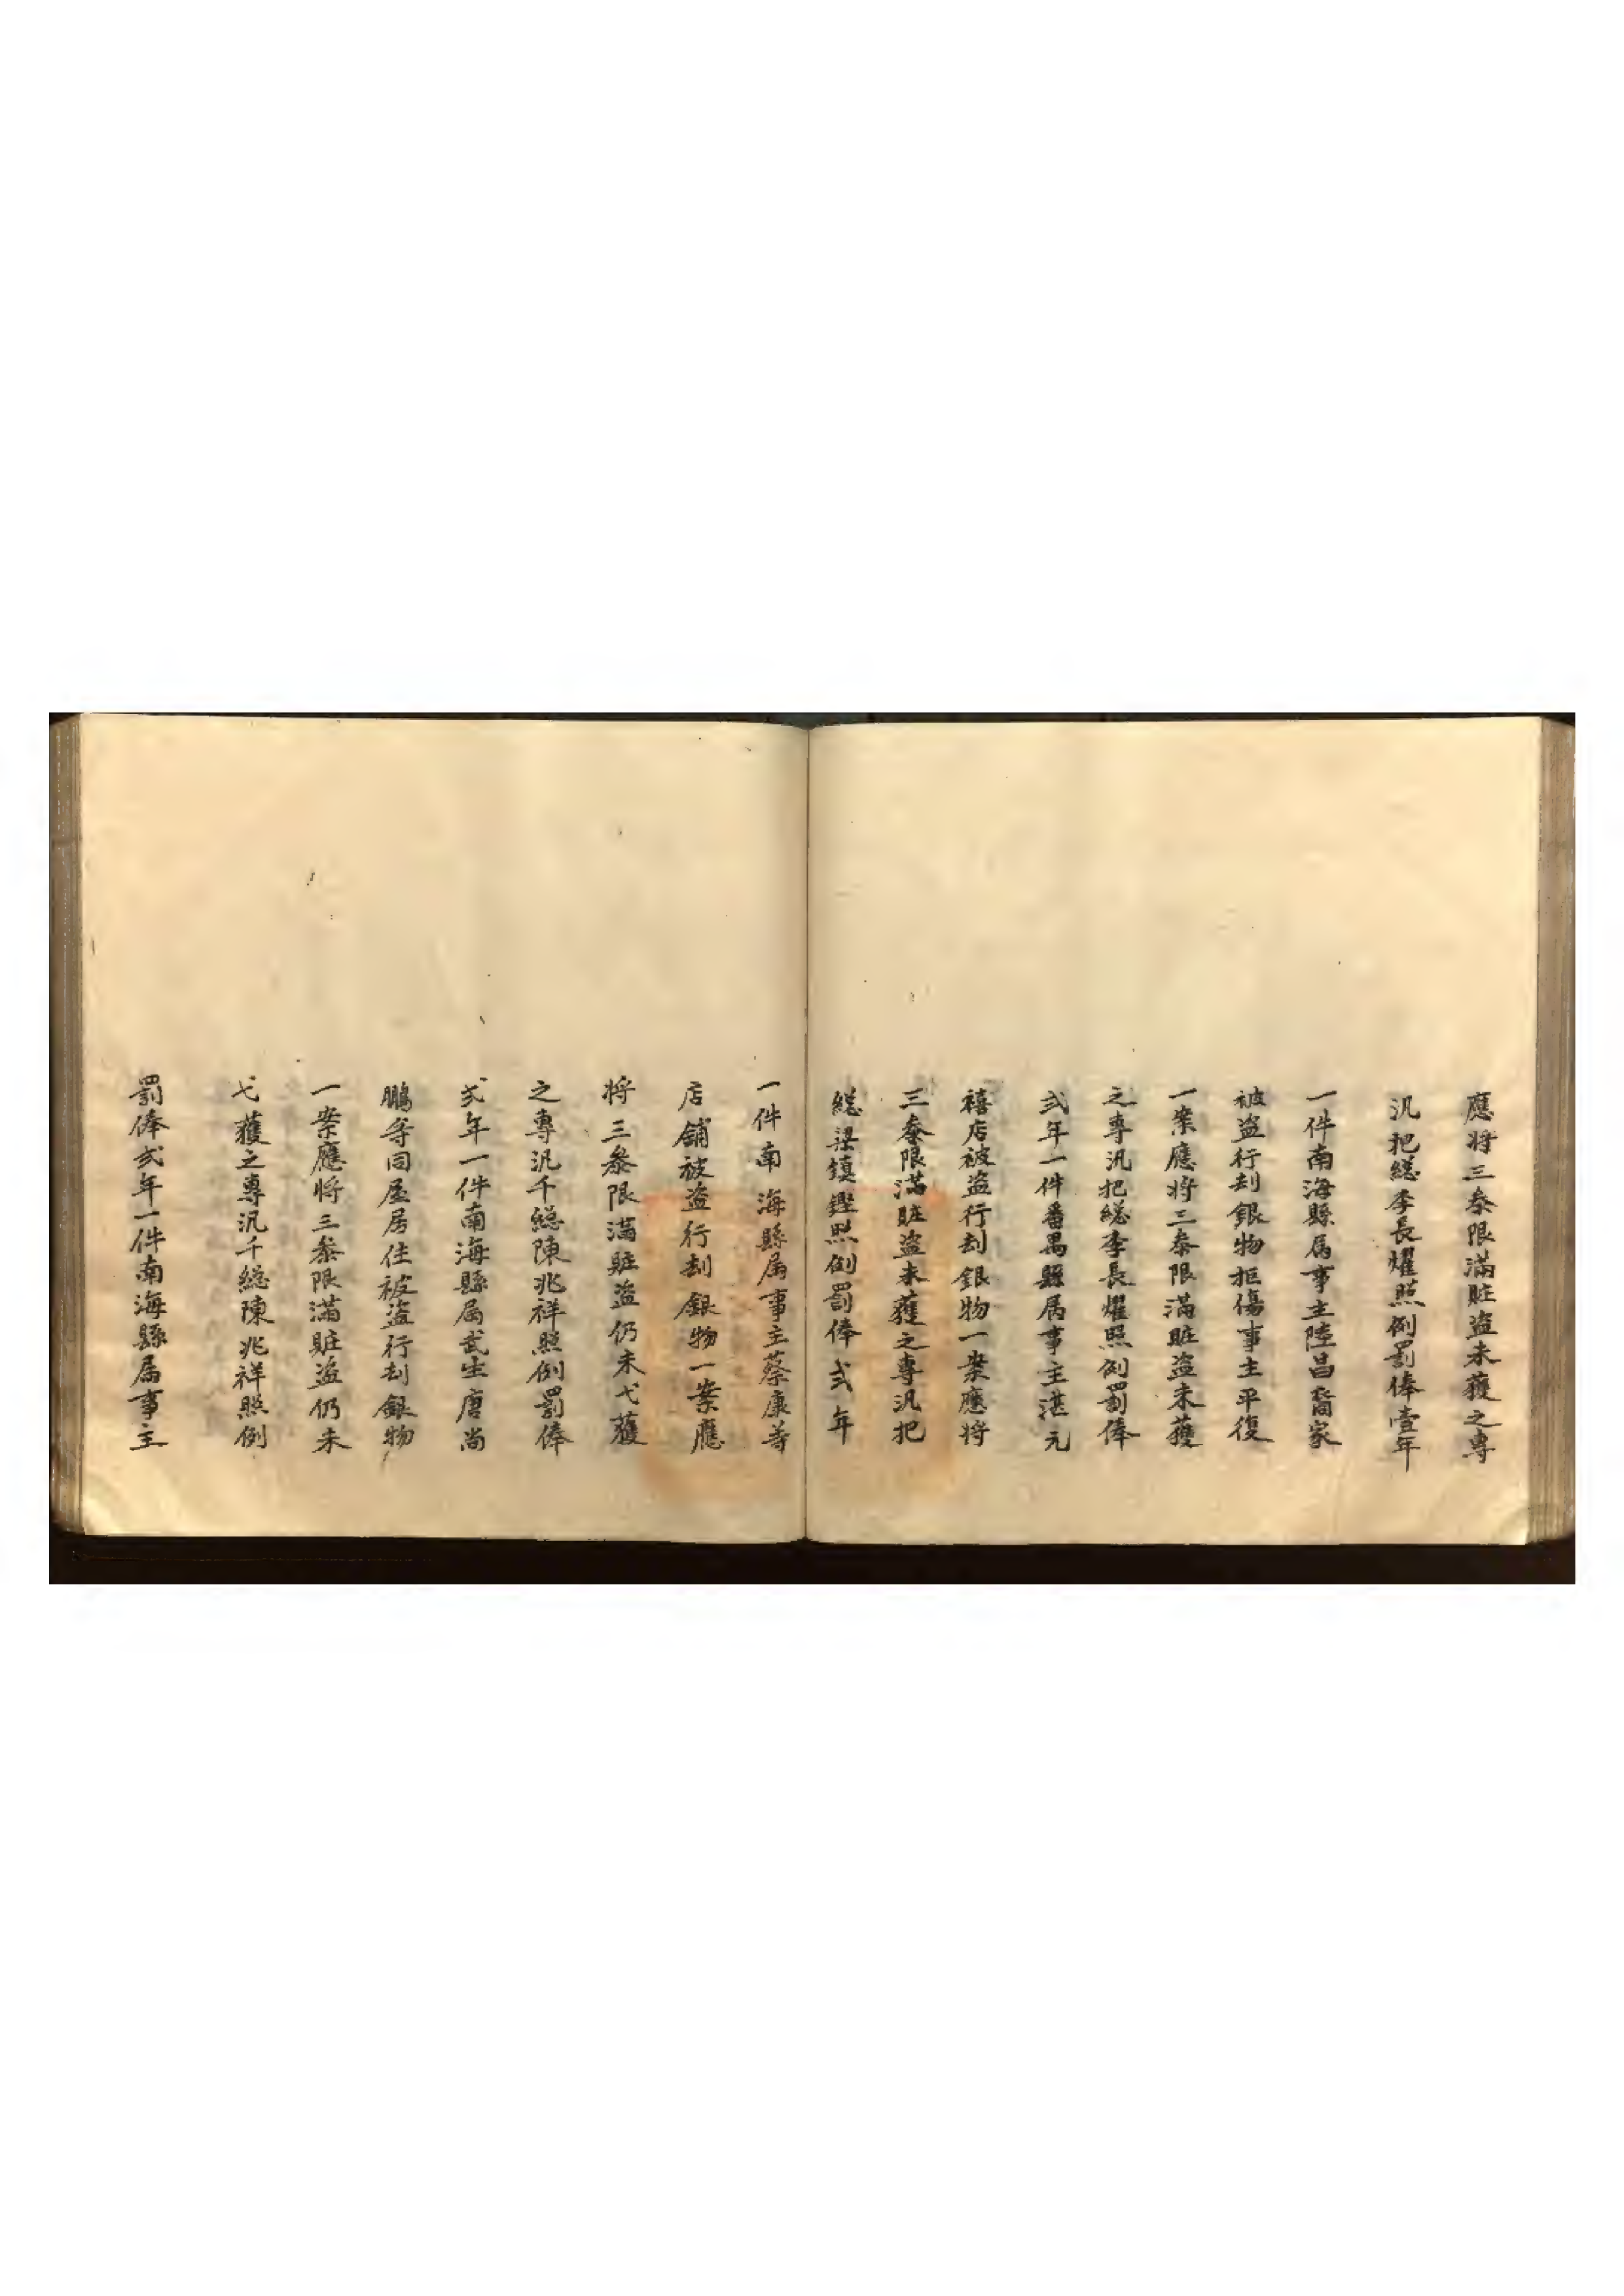 應将三叅限滿賍盗未獲之專
汛把総李長燿照例罰俸壹年
一件南海縣属事主陸昌裔家
被盗行刦銀物拒傷事主平復
一案應将三叅限滿賍盗未獲
之專汛把総李長燿照例罰俸
弍年一件番禺縣属事主湛元
禧店被盗行刦銀物一案應将
三叅限滿賍盗未獲之專汛把
総梁鎮鏗照例罰俸弍年
一件南海縣属事主蔡康等
店舖被盗行刦銀物一案應
将三叅限滿賍盗仍未弋獲
之專汛千総陳兆祥照例罰俸
弍年一件南海縣属武生唐尚
鵬等同屋居住被盗行刦銀物
一案應将三叅限滿賍盗仍未
弋獲之專汛千総陳兆祥照例
罰俸弍年一件南海縣属事主